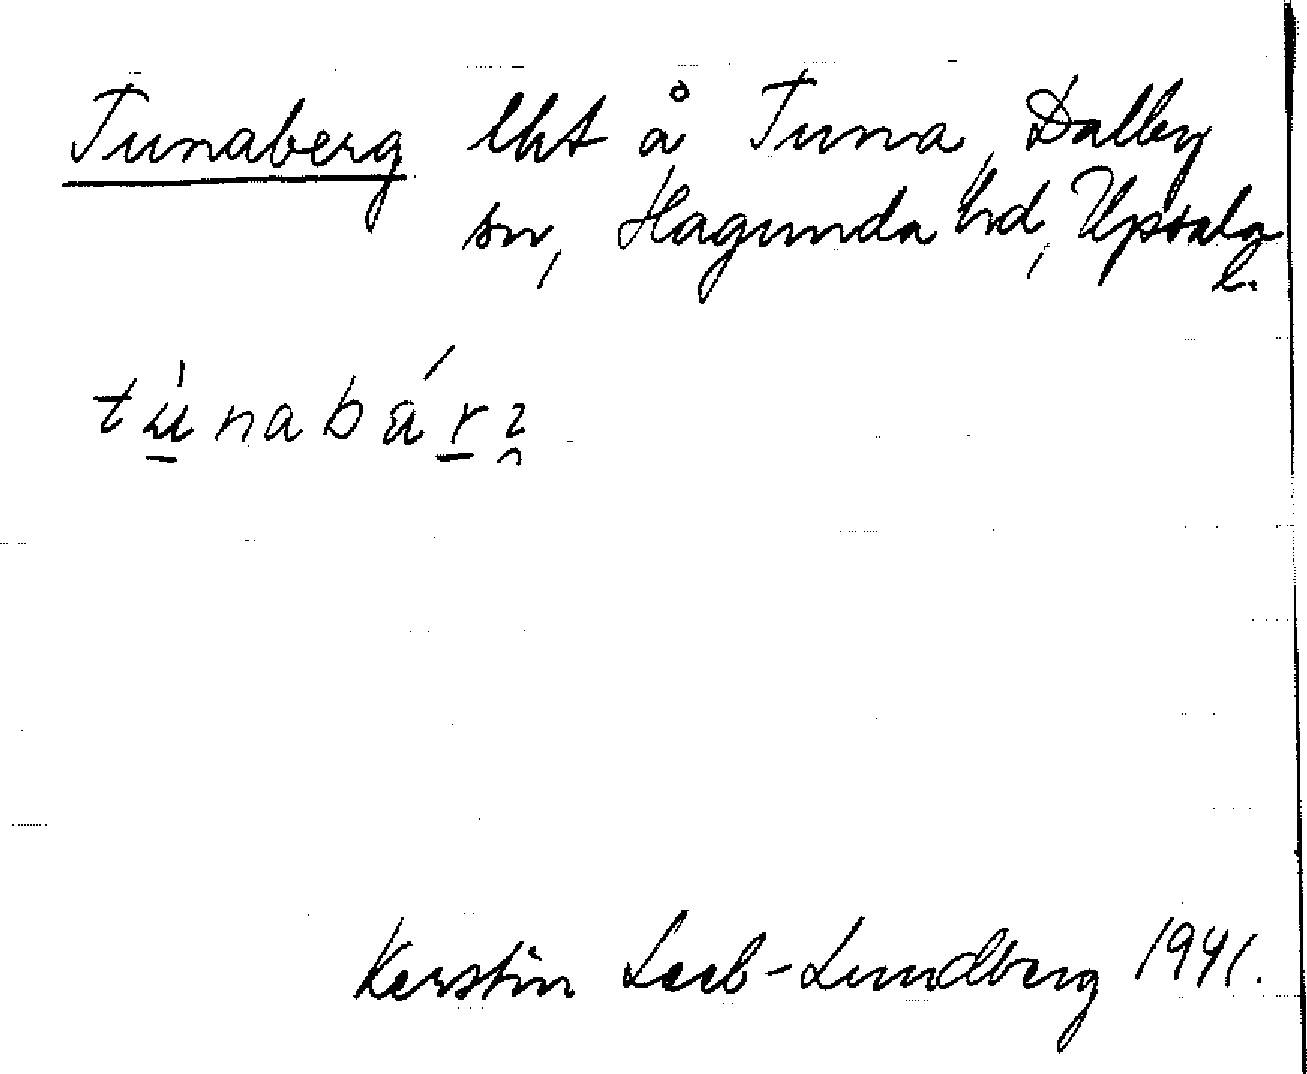 Tunaberg lht å Tuna, Dalby
sn, Hagunda hd, Upsala
l.
tu̠̇nabár̠ı̯
Kerstin Leeb-Lundberg 1941.